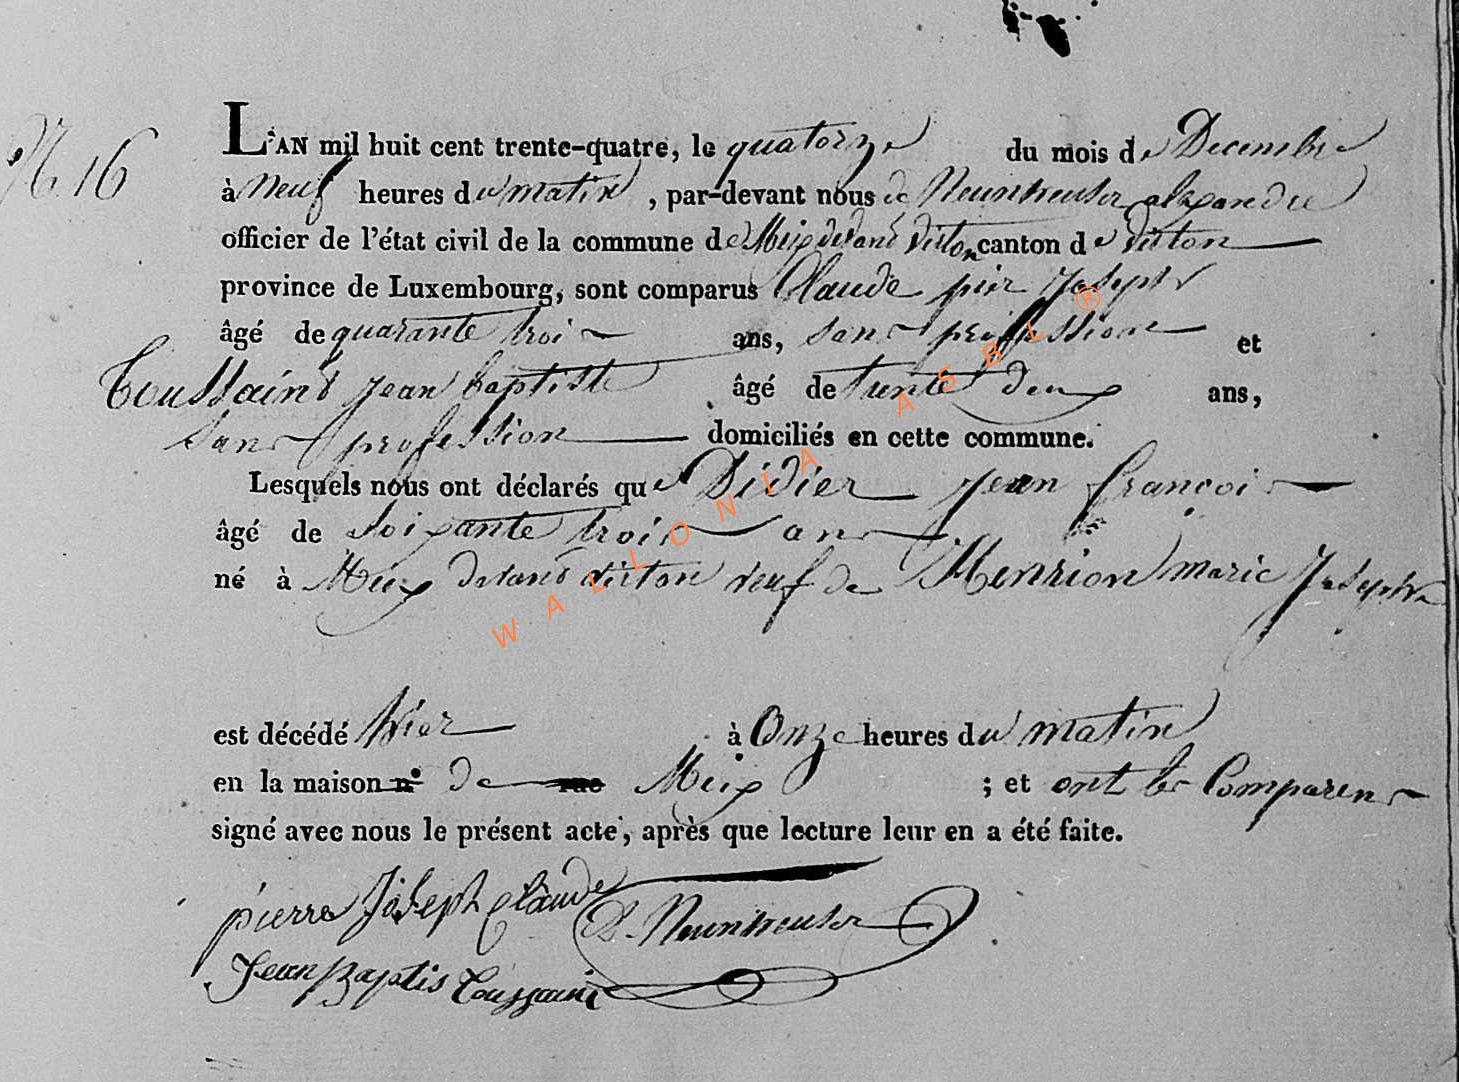 N 16
L'AN mil huit cent trente-quatre, le quatorze du mois de Decembre
à neuf heures du matin, par-devant nous de Neunheuser alexandre
officier de l'état civil de la commune de Meix devant virton canton de virton
province de Luxembourg, sont comparus Claude pier Joseph
âgé de quarante trois ans, sans profession et
Toussaint jean baptiste âgé de trente deux ans,
sans profession domiciliés en cette commune.
Lesquels nous ont déclarés que Didier jean francois
âgé de soixante trois ans
né à Meix devant virton veuf de Henrion marie Josephe
est décédé hier à Onze heures du matin
en la maison n° de rue Meix ; et ont les Comparens
signé avec nous le présent acte, après que lecture leur en a été faite.
pierre Joseph Claude
A. Neunheuser
Jean Baptis Toussaint
WALLONIA ASBL ®